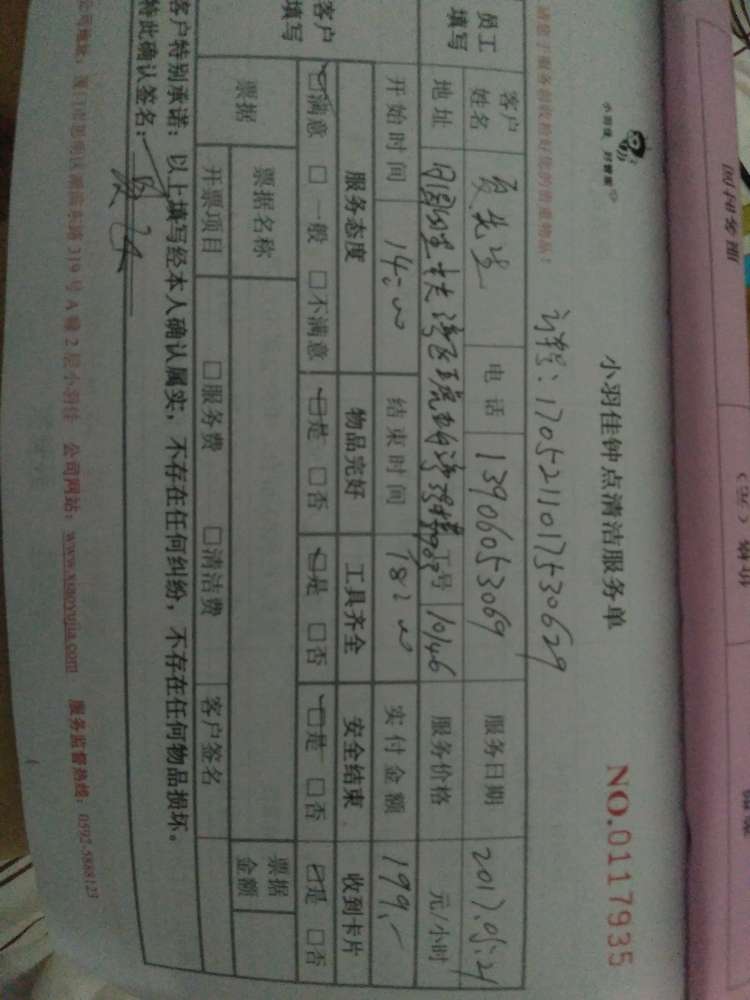 小羽佳 好管家
小羽佳钟点清洁服务单
NO.0117935
请您于服务前收拾好您的贵重物品！
订单号：1705211017530629
员工填写
客户姓名 先生 电话 13906053069 服务日期 2017.05.21
地址 工号 10146 服务价格 元/小时
开始时间 14:00 结束时间 18:00 实付金额 199.-
客户填写
服务态度 物品完好 工具齐全 安全结束 收到卡片
☑满意 □一般 □不满意 ☑是 □否 ☑是 □否 ☑是 □否 ☑是 □否
票据 票据名称 票据金额
开票项目 □服务费 □清洁费 客户签名
客户特别承诺：以上填写经本人确认属实，不存在任何纠纷，不存在任何物品损坏。
特此确认签名：
公司地址：厦门市思明区湖滨东路319号A幢2层小羽佳 公司网站：www.xiaoyujia.com 服务监督热线：0592-5888123